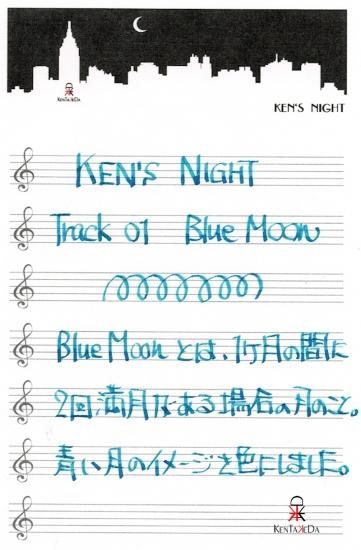 KENTAKEDA
KEN'S NIGHT
KEN'S NIGHT
Track 01 Blue Moon
Blue Moon とは、1ケ月の間に
2回満月がある場合の月のこと。
青い月のイメージを色にしました。
KENTAKEDA